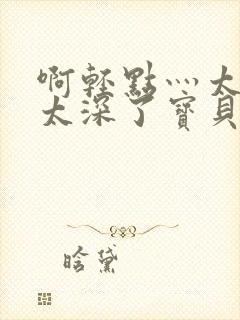 啊轻點灬太
太深了寶貝
晗黛